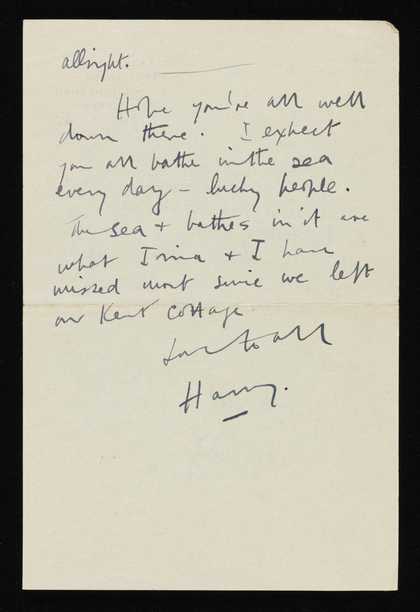 allright.
Hope you're all well
down there. I expect
you all bathe in the sea
every day - lucky people.
The sea + bathes in it are
what Irina + I have
missed most since we left
our Kent cottage
Love to all
Harry.